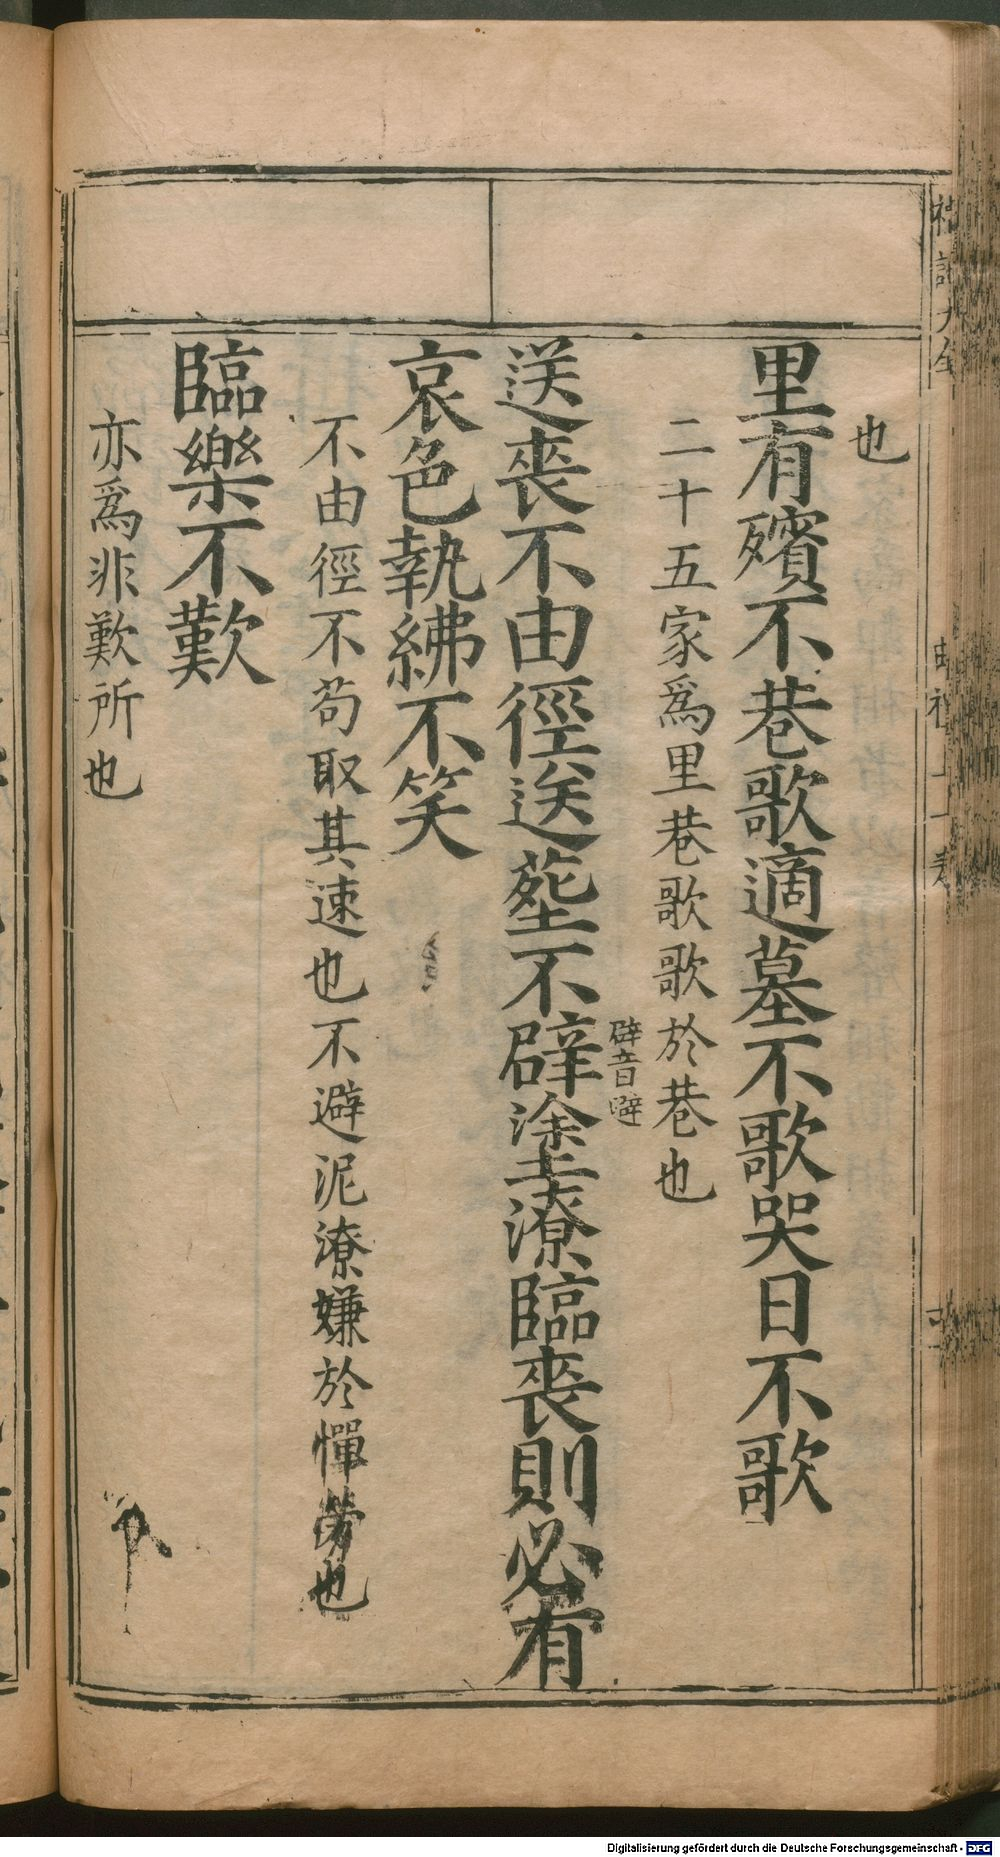 也
里有殯不巷歌適墓不歌哭日不歌
二十五家爲里巷歌歌於巷也
辟音避
送喪不由徑送塟不辟塗潦臨喪則必有
哀色執紼不笑
不由徑不苟取其速也不避泥潦嫌於憚勞也
臨樂不歎
亦爲非歎所也
Digitalisierung gefördert durch die Deutsche Forschungsgemeinschaft - DFG